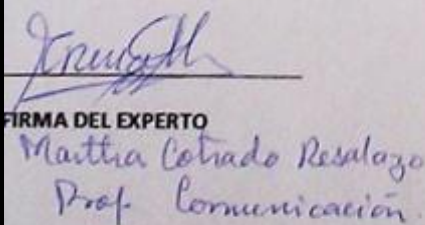 FIRMA DEL EXPERTO
Martha Cotrado Resalazo
Prof. Comunicación.